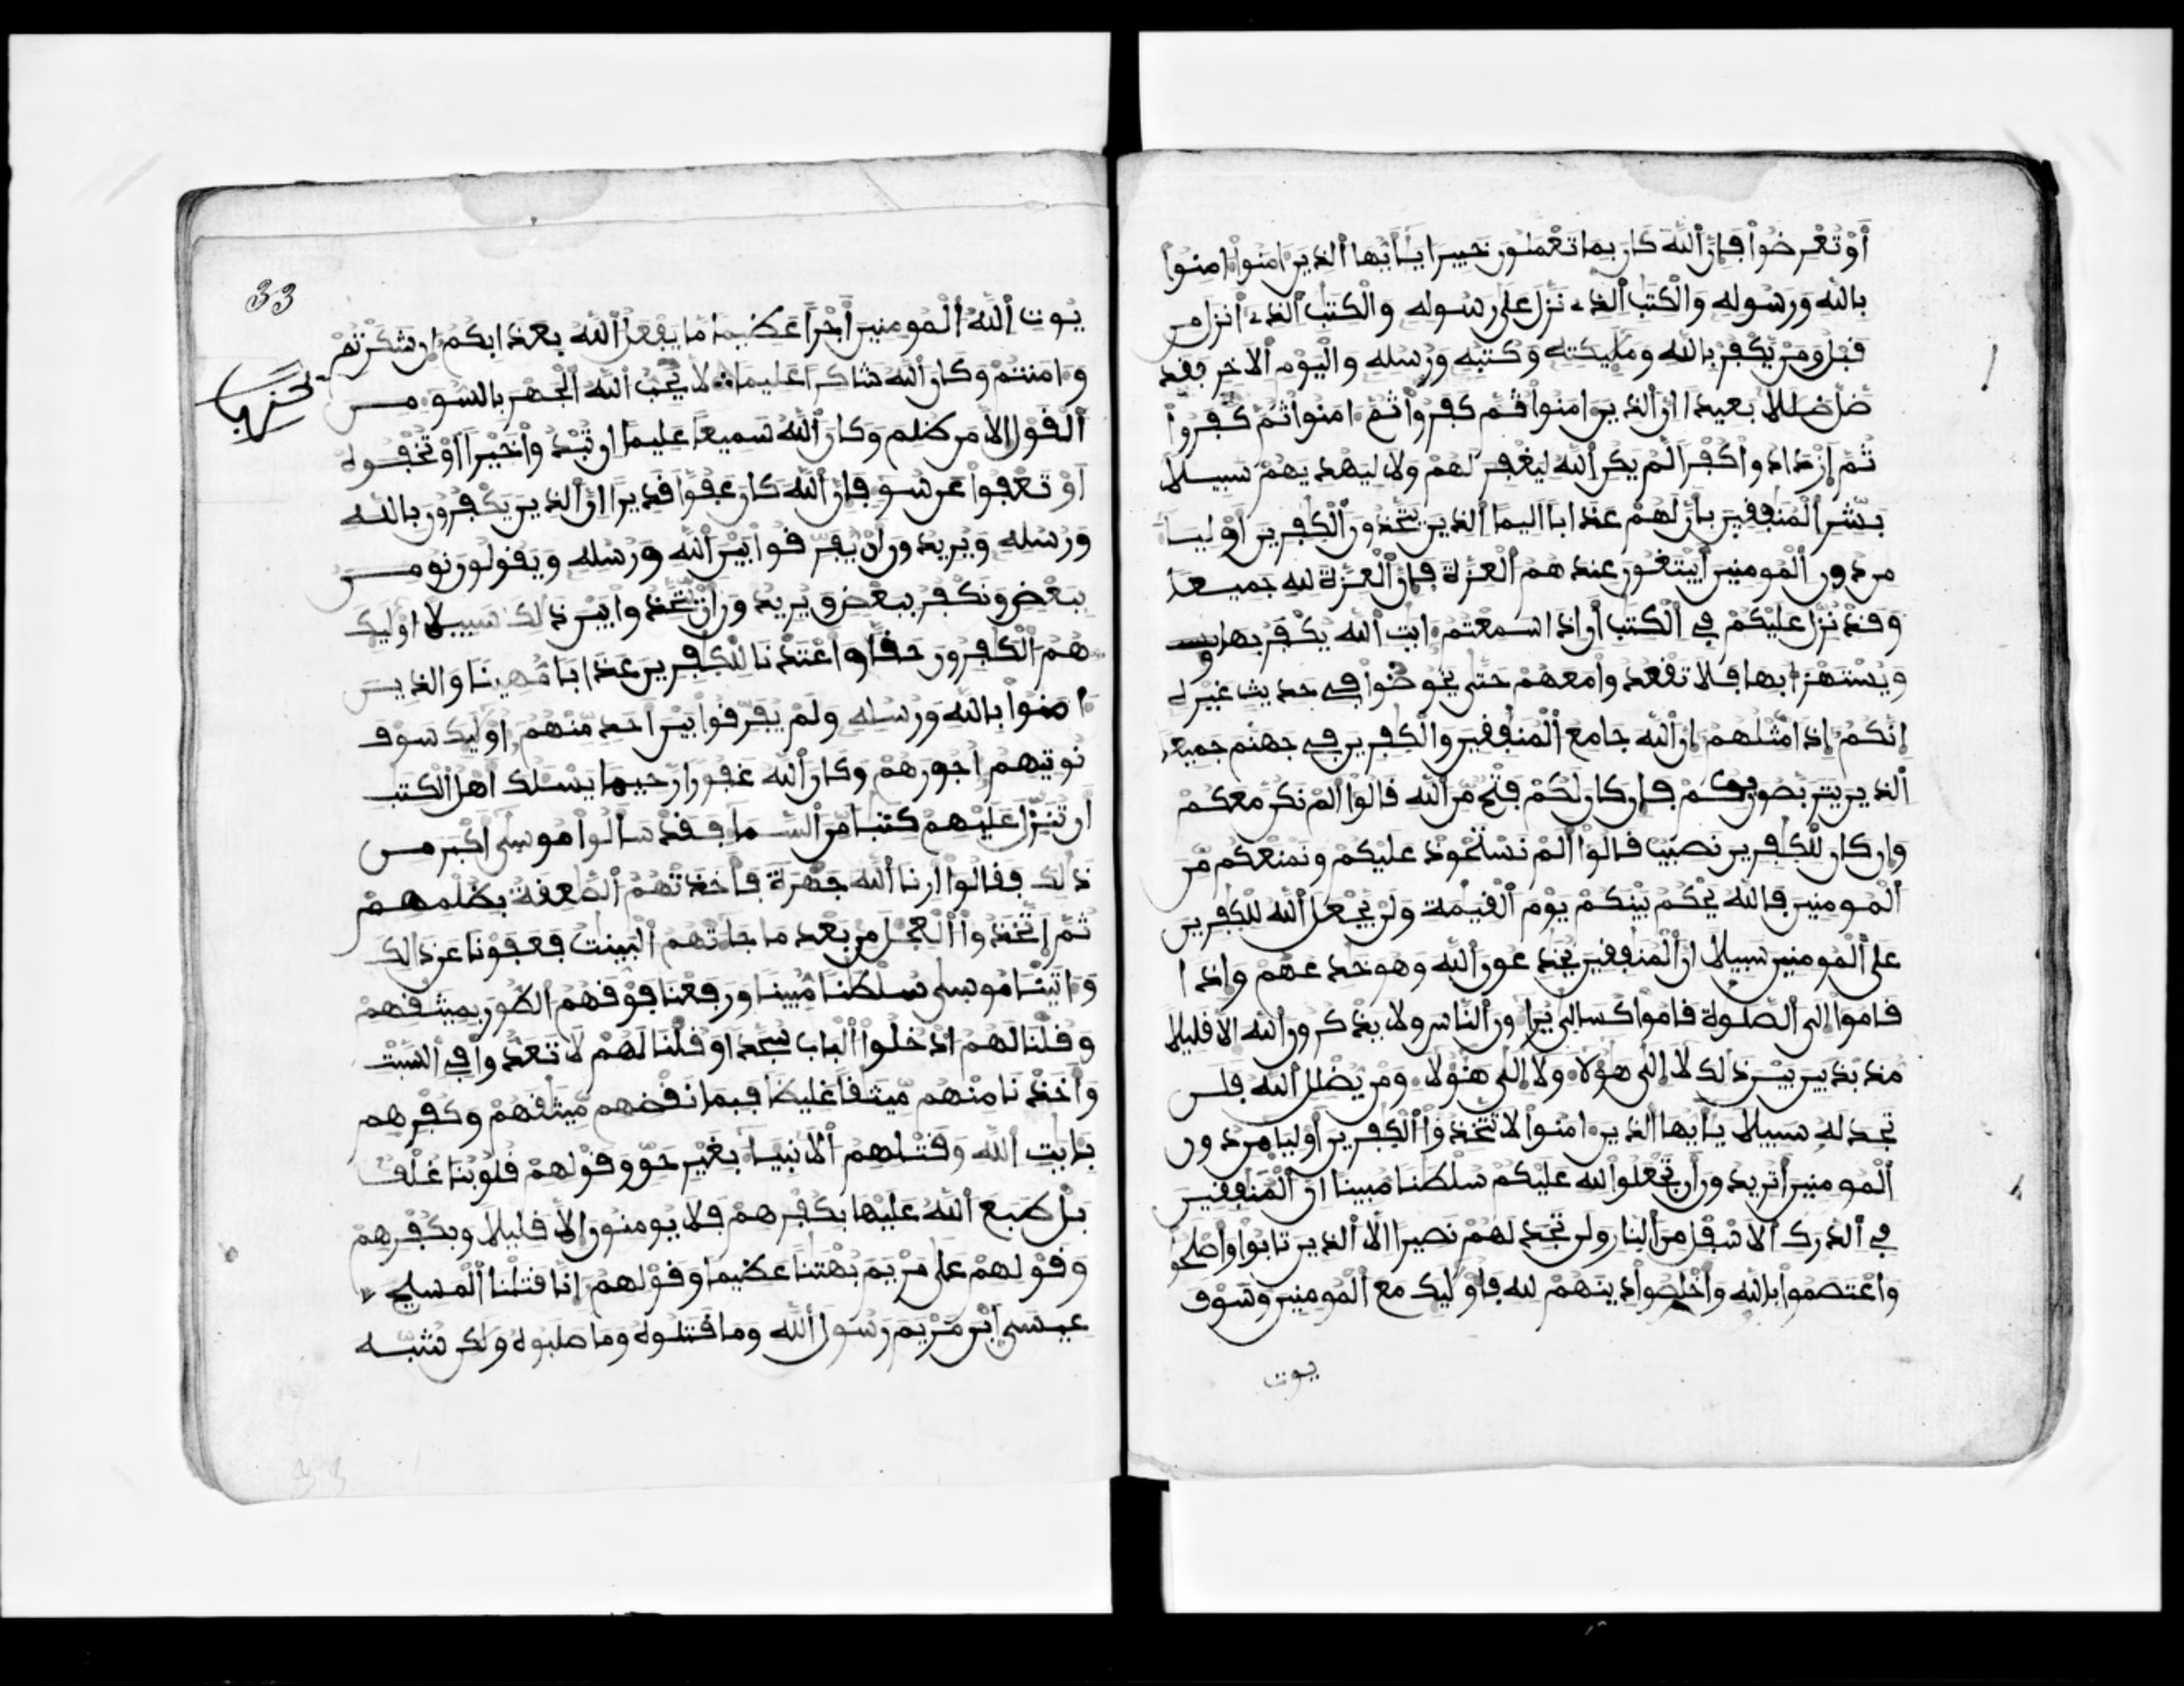 أَوْ تُعْرِضُوا فَإِنَّ اللَّهَ كَانَ بِمَا تَعْمَلُونَ خَبِيرًا يَـٰأَيُّهَا الذِينَ ءَامَنُوا ءَامِنُوا
بالله ورسوله والكتب الذے نزل على رسوله والكتب الذے أنزل من
قبل ومن يكفر بالله ومليكته وكتبه ورسله واليوم الاخر فقد
ضل ضللا بعيدا ان الذين ءامنوا ثم كفروا ثم ءامنوا ثم كفروا
ثم ازدادوا كفرا لم يكن الله ليغفر لهم ولا ليهديهم سبيلا
بشر المنفقين بأن لهم عذابا اليما الذين يتخذون الكفرين اوليا
من دون المومنين أيبتغون عندهم العزة فإن العزة لله جميعا
وقد نزل عليكم في الكتب أن اذا سمعتم ءايت الله يكفر بها
ويستهزأ بها فلا تقعدوا معهم حتى يخوضوا في حديث غيره
إنكم إذا مثلهم إن الله جامع المنفقين والكفرين في جهنم جميعا
الذين يتربصون بكم فإن كان لكم فتح من الله قالوا ألم نكن معكم
وإن كان للكفرين نصيب قالوا ألم نستحوذ عليكم ونمنعكم من
المومنين فالله يحكم بينكم يوم القيمة ولن يجعل الله للكفرين
على المومنين سبيلا ان المنفقين يخدعون الله وهو خدعهم وإذا
قاموا إلى الصلوة قاموا كسالى يراءون الناس ولا يذكرون الله الا قليلا
مذبذبين بين ذلك لا إلى هؤلاء ولا إلى هؤلاء ومن يضلل الله فلن
تجد له سبيلا يأيها الذين ءامنوا لا تتخذوا الكفرين أوليا من دون
المومنين أتريدون أن تجعلوا لله عليكم سلطنا مبينا ان المنفقين
في الدرك الاسفل من النار ولن تجد لهم نصيرا الا الذين تابوا وأصلحوا
واعتصموا بالله وأخلصوا دينهم لله فأوليك مع المومنين وسوف
يوت
33
يوت الله المومنين أجرا عظيما ما يفعل الله بعذابكم إن شكرتم
وءامنتم وكان الله شاكرا عليما لا يحب الله الجهر بالسو من
حزب
القول إلا من ظلم وكان الله سميعا عليما ان تبدوا خيرا أو تخفوه
أو تعفوا عن سو فإن الله كان عفوا قديرا ان الذين يكفرون بالله
ورسله ويريدون أن يفرقوا بين الله ورسله ويقولون نومن
ببعض ونكفر ببعض ويريدون أن يتخذوا بين ذلك سبيلا اوليك
هم الكفرون حقا وأعتدنا للكفرين عذابا مهينا والذين
ءامنوا بالله ورسله ولم يفرقوا بين أحد منهم اوليك سوف
نوتيهم أجورهم وكان الله غفورا رحيما يسلك أهل الكتب
أن تنزل عليهم كتبا من السما فقد سألوا موسى أكبر من
ذلك فقالوا أرنا الله جهرة فأخذتهم الصعقة بظلمهم
ثم اتخذوا العجل من بعد ما جاتهم البينت فعفونا عن ذلك
وءاتينا موسى سلطنا مبينا ورفعنا فوقهم الطور بميثقهم
وقلنا لهم ادخلوا الباب سجدا وقلنا لهم لا تعدوا في السبت
وأخذنا منهم ميثقا غليظا فبما نقضهم ميثقهم وكفرهم
بئايت الله وقتلهم الانبيا بغير حق وقولهم قلوبنا غلف
بل طبع الله عليها بكفرهم فلا يومنون إلا قليلا وبكفرهم
وقولهم على مريم بهتنا عظيما وقولهم إنا قتلنا المسيح
عيسى ابن مريم رسول الله وما قتلوه وما صلبوه ولكن شبه